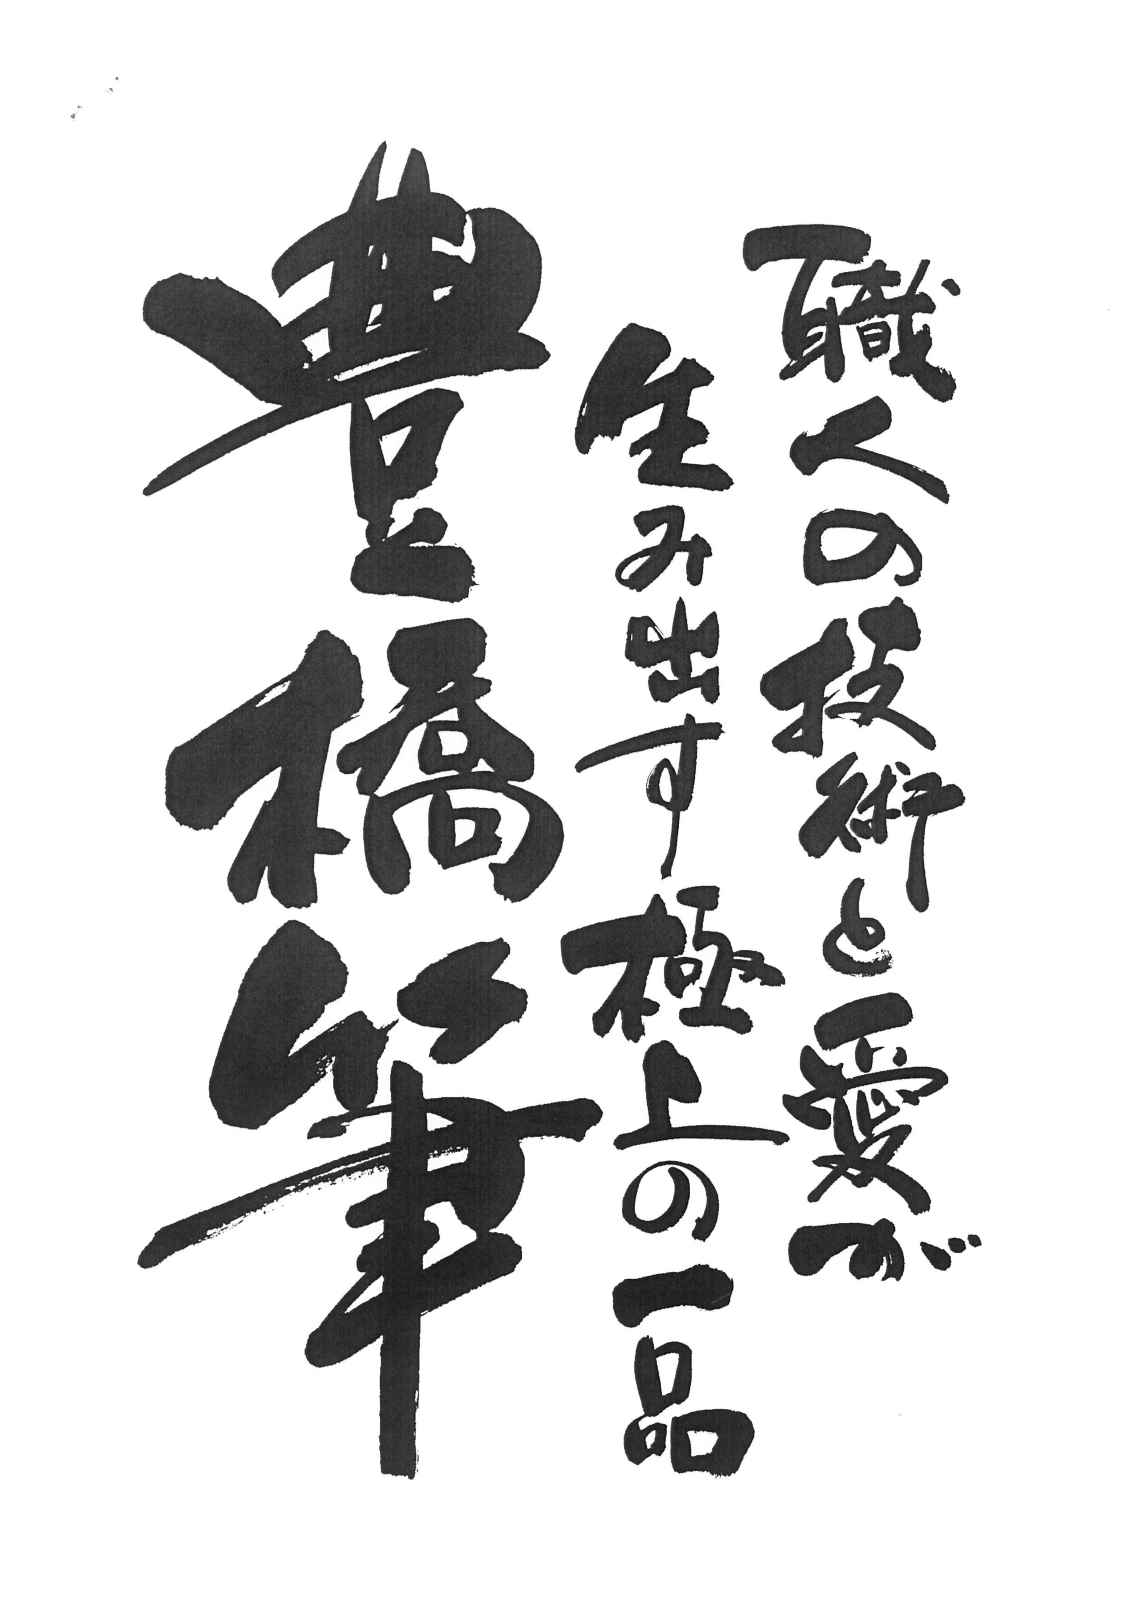 職人の技術と愛が
生み出す極上の一品
豊橋筆